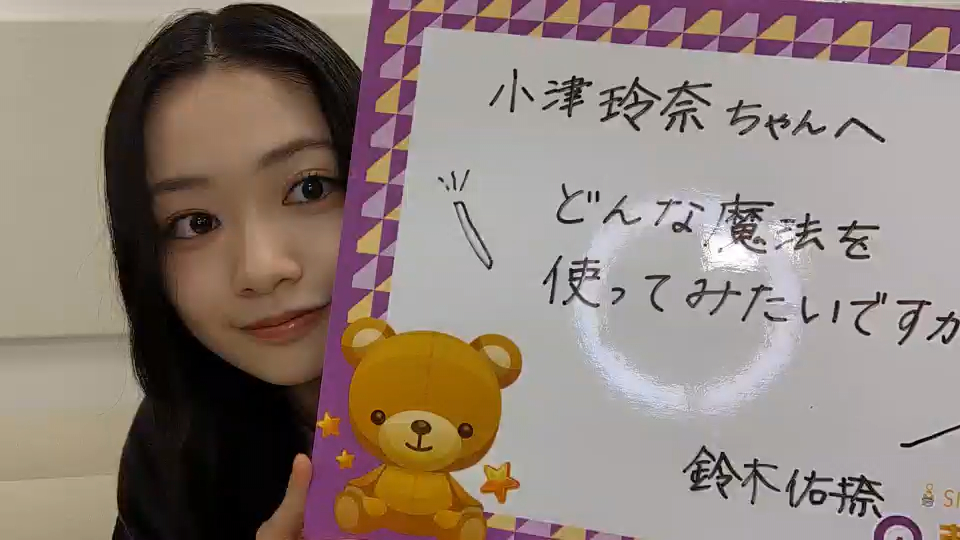 小津玲奈ちゃんへ
どんな魔法を
使ってみたいですか
鈴木佑捺